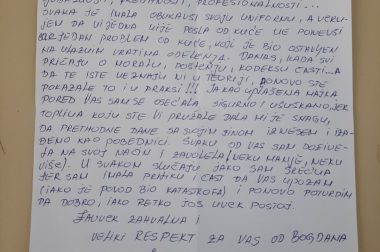 LJUBAZNOSTI, PREDANOSTI, PROFESIONALNOSTI...
SVAKA JE IMALA OBUKLA SVOJU UNIFORMU, A VERU-
JEM DA NIJEDNA NIJE POSLA OD KUĆE NE PONEVŠI
BAR JEDAN PROBLEM OD KUĆE, KOJI JE BIO OSTAVLJEN
NA ULAZNIM VRATIMA ODELENJA. DANAS, KADA SVI
PRIČAJU O MORALU, POŠTENJU, KODEKSU ČASTI... A
DA TE ISTE NE ZNAJU NI U TEORIJI, PONOVO STE
POKAZALE TO I U PRAKSI!!! JAKO UPLAŠENA NAJKA
PORED VAS SAM SE OSEĆALA SIGURNO I UŠUŠKANO, JER
TOPLINA KOJU STE VI PRUŽALE DALA MI JE SNAGU,
DA PRETHODNE DANE SA SVOJIM SINOM IZNESEM I IZA-
ĐEMO KAO POBEDNICI. SVAKU OD VAS SAM DOŽIVE-
LA NA SVOJ NAČIN I ZAVOLELA (NEKU MANJE, NEKU
VIŠE). U SVAKOM SLUČAJU JAKO SAM SREĆNA
JER SAM IMALA PRILIKU I ČAST DA VAS UPOZNAM
(IAKO JE POVOD BIO KATASTROFA) I PONOVO POTVRDIM
DA DOBRO, IAKO RETKO JOŠ UVEK POSTOJI.
ZAUVEK ZAHVALNA I
VELIKI RESPEKT ZA VAS OD BOGDANA